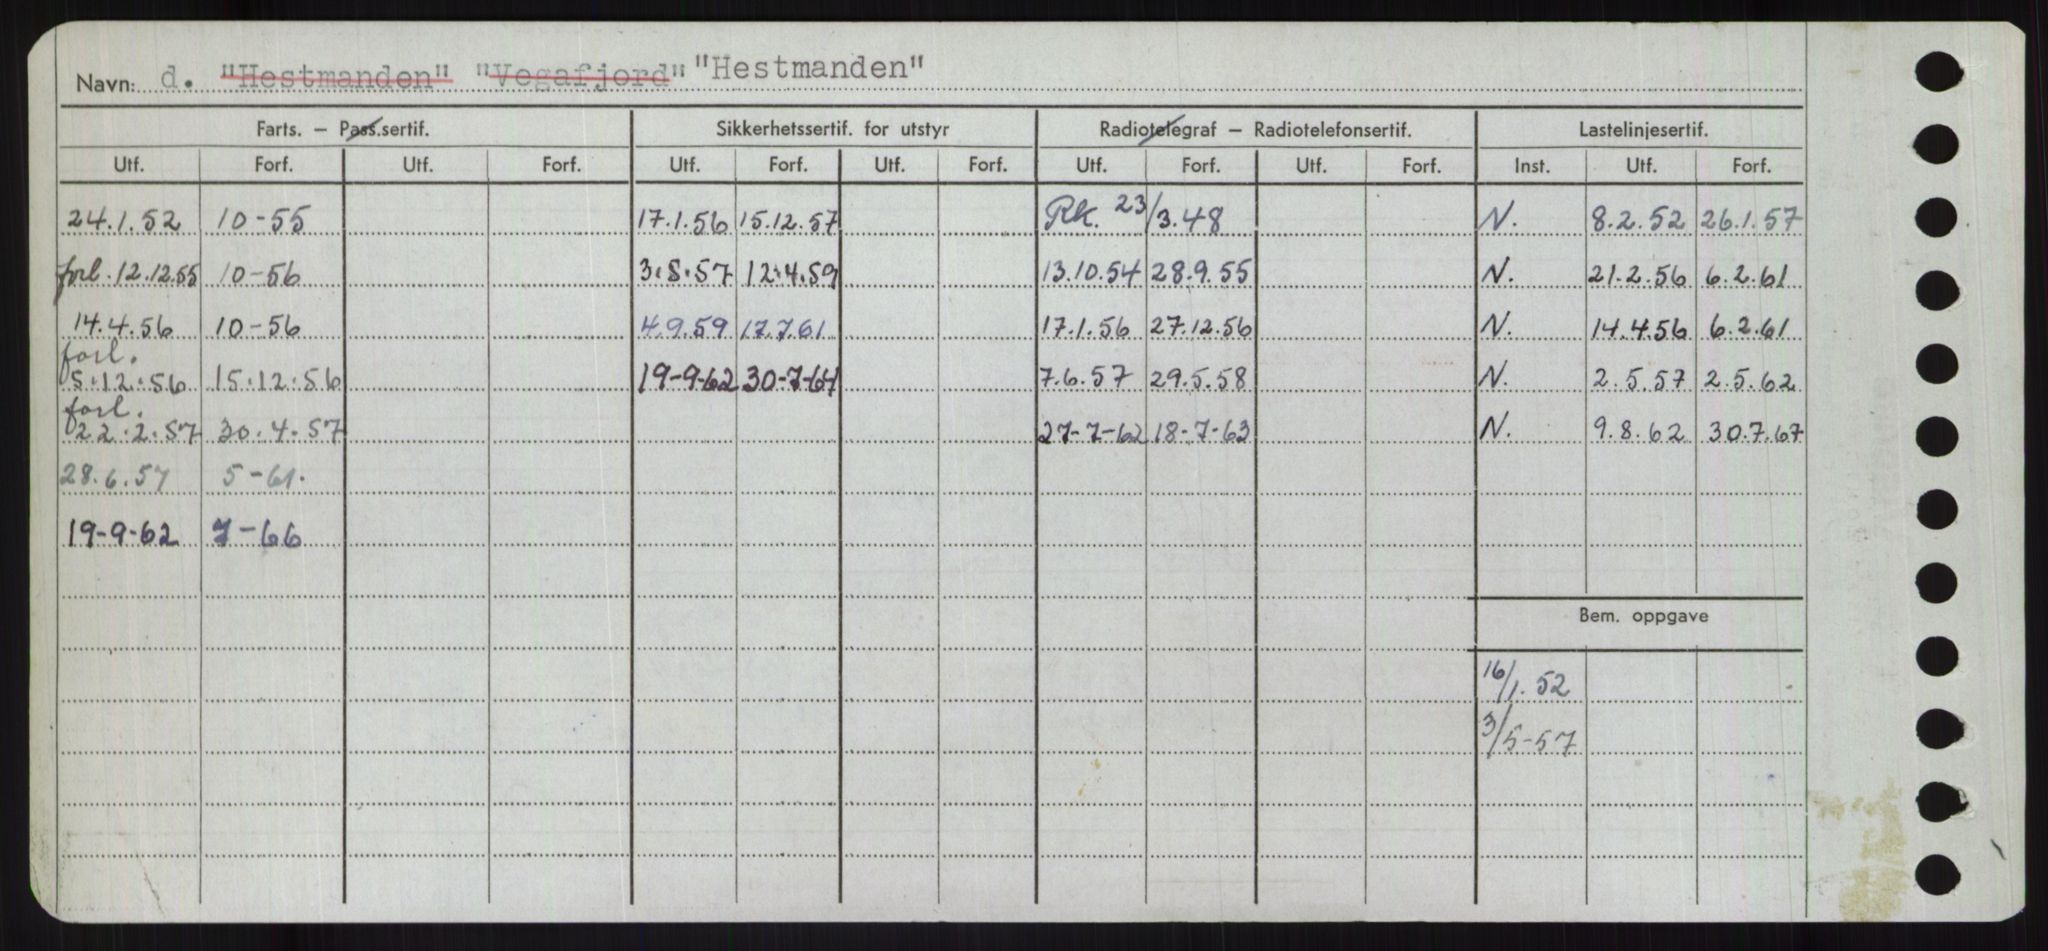 Navn: d. "Hestmanden" "Vegafjord" "Hestmanden"
Farts. – Pass.sertif. Sikkerhetssertif. for utstyr Radiotelegraf – Radiotelefonsertif. Lastelinjesertif.
Utf. Forf. Utf. Forf. Utf. Forf. Utf. Forf. Utf. Forf. Utf. Forf. Inst. Utf. Forf.
24.1.52 10-55 17.1.56 15.12.57 Rk. 23/3.48 N. 8.2.52 26.1.57
forl. 12.12.55 10-56 3.5.57 12.4.59 13.10.54 28.9.55 N. 21.2.56 6.2.61
14.4.56 10-56 4.9.59 17.7.61 17.1.56 27.12.56 N. 14.4.56 6.2.61
forl.
5.12.56 15.12.56 19-9-62 30-7-64 7.6.57 29.5.58 N. 2.5.57 2.5.62
forl.
22.2.57 30.4.57 27-7-62 18-7-63 N. 9.8.62 30.7.67
28.6.57 5-61.
19-9-62 7-66
Bem. oppgave
16/1.52
3/5-57